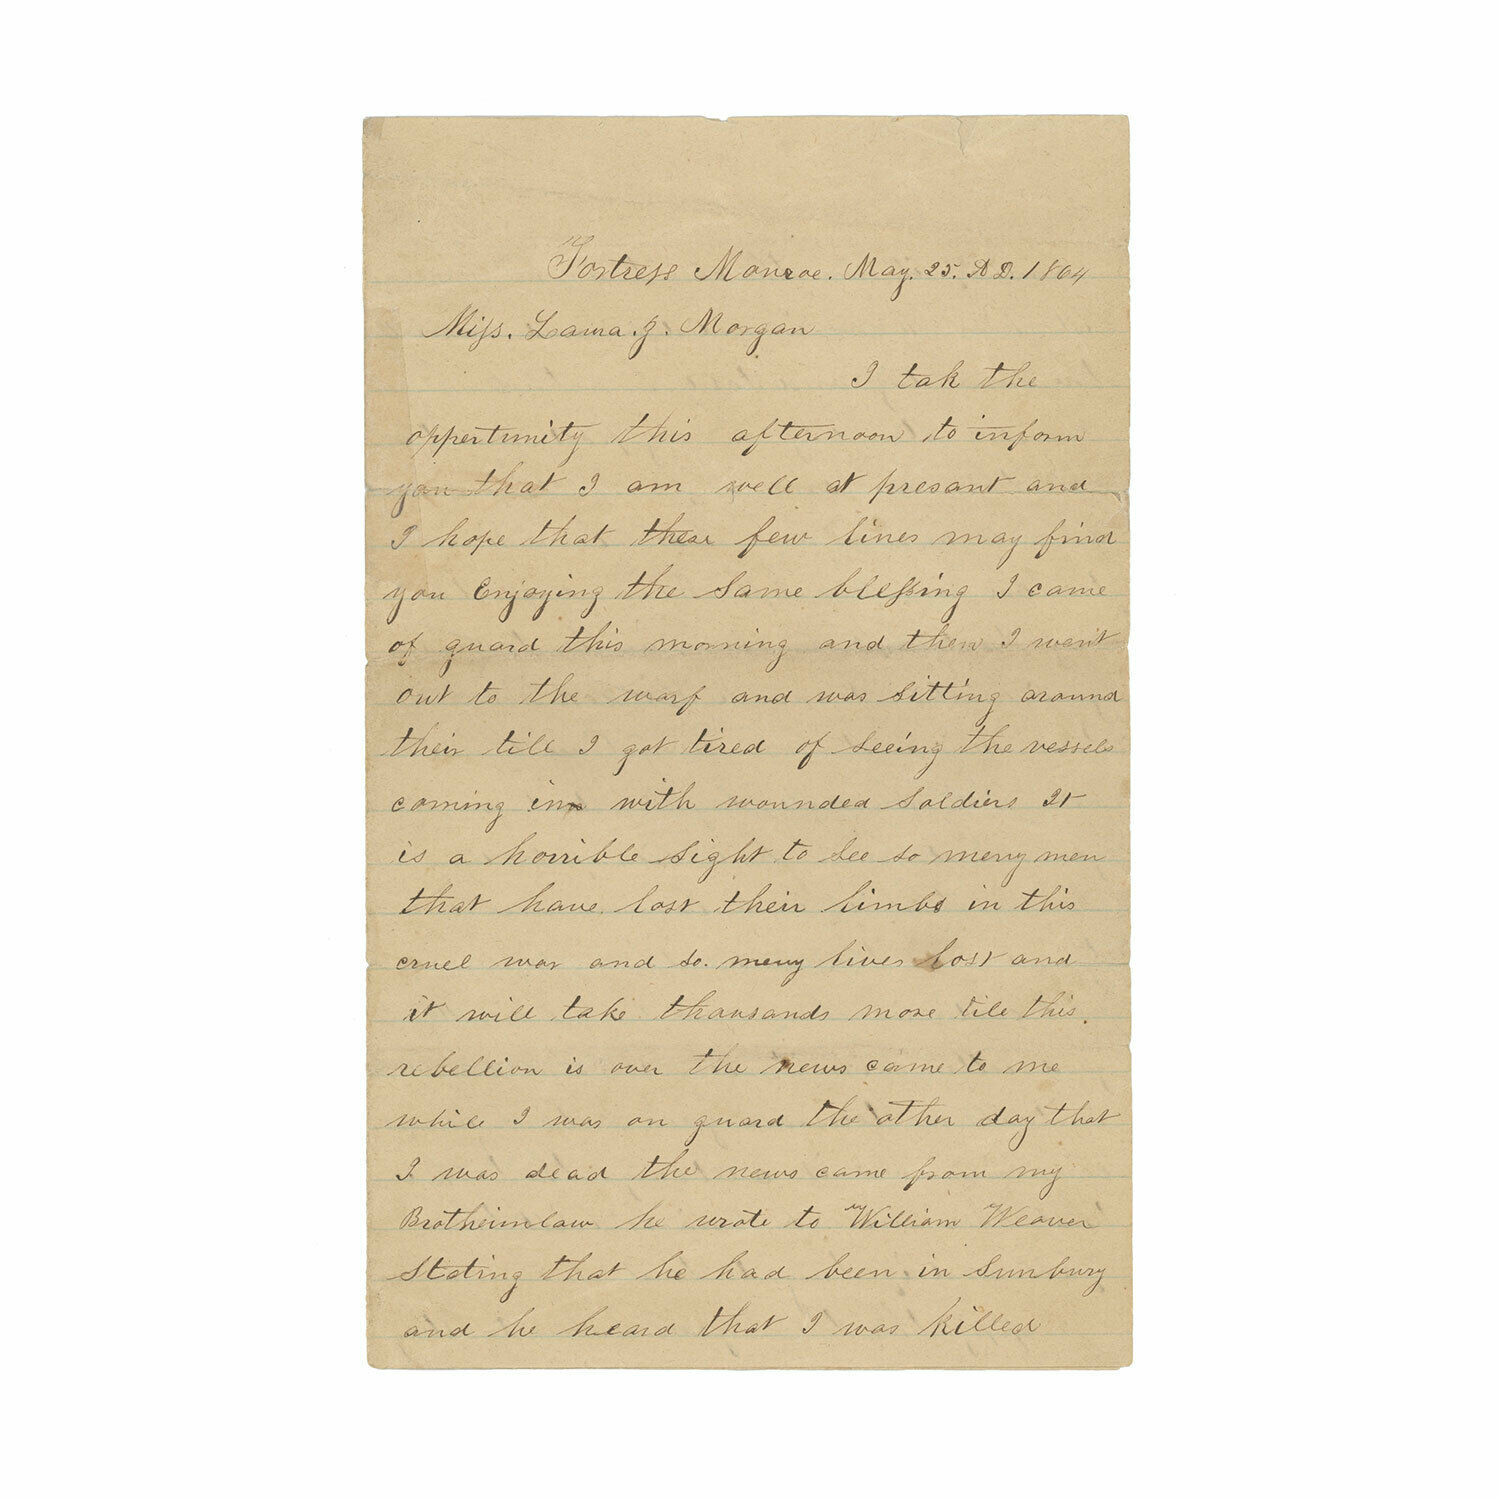 Fortress Monroe. May. 25. AD. 1864
Miss. Laura. J. Morgan
I tak the
oppertunity this afternoon to inform
you that I am well at presant and
I hope that these few lines may find
you Enjoying the Same blessing I came
of guard this morning and then I went
out to the warf and was Sitting around
their till I got tired of Seeing the vessels
coming inn with wounded Soldiers It
is a horrible Sight to See so meny men
that have lost their limbs in this
cruel war and so. meny lives lost and
it will take thousands more till this.
rebellion is over the news came to me
while I was on guard the other day that
I was dead the news came from my
Brotheinlaw he wrote to Wm William Weaver
Stating that he had been in Sunbury
and he heard that I was killed